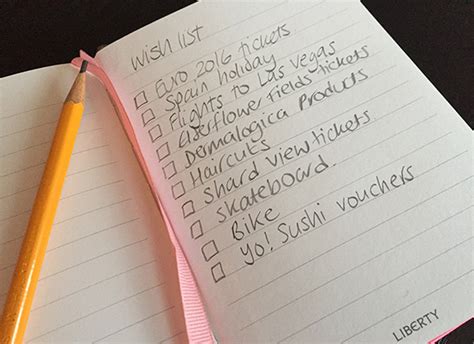 wish list
Euro 2016 tickets
Spain holiday
Flights to Las Vegas
Elderflower fields tickets
Dermalogica Products
Haircuts
Shard view tickets
Skateboard.
Bike
Yo! Sushi vouchers
LIBERTY